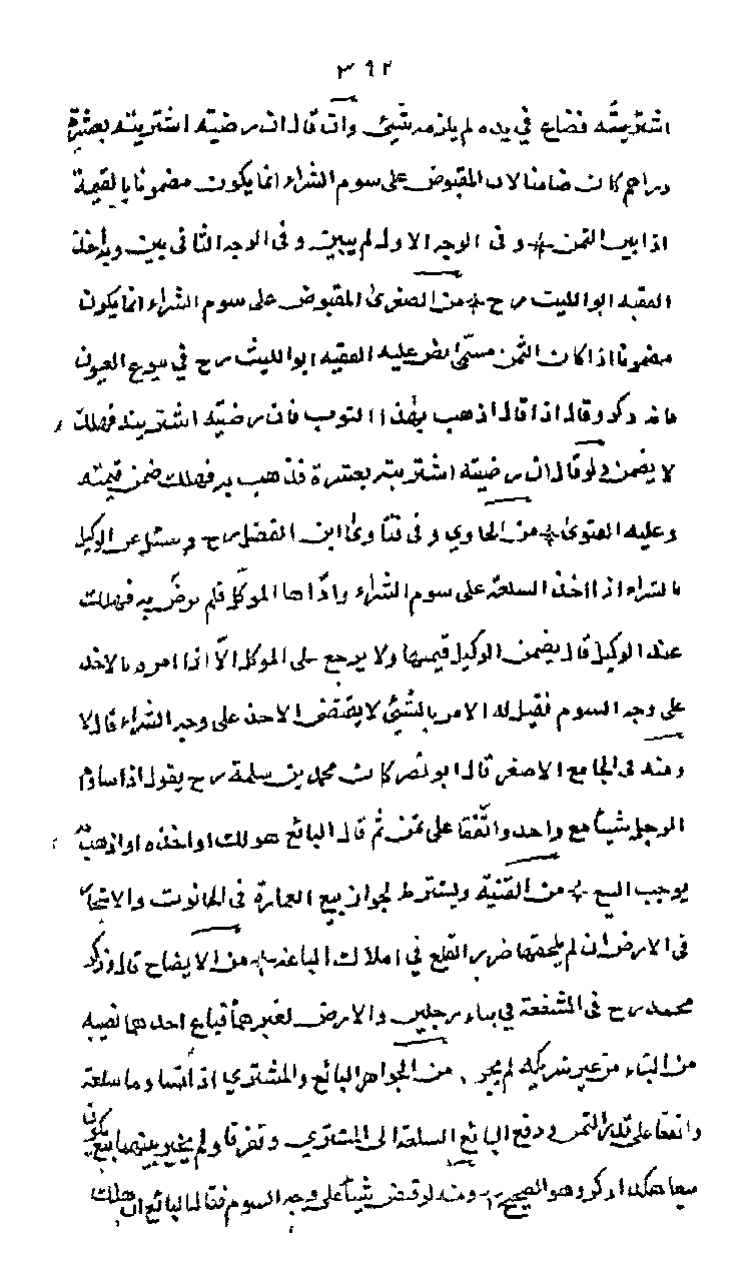 ٣٩٢
اشتريته فضاع في يده لم يلزمه شيئ وان قال ان رضيته اشتريته بعشرة
دراهم كان ضامنا لان المقبوض على سوم الشراء انما يكون مضمونا بالقيمة
اذا بين الثمن وفى الوجه الاول لم يبين وفى الوجه الثانى بين وبه اخذ
الفقيه ابو الليث رح من الصغرى المقبوض على سوم الشراء انما يكون
مضمونا اذا كان الثمن مسمى نص عليه الفقيه ابو الليث رح في بيوع العيون
فانه ذكر وقال اذا قال اذهب بهذا الثوب فان رضيته اشتريته فهلك
لا يضمن ولو قال ان رضيته اشتريته بعشرة فذهب به فهلك ضمن قيمته
وعليه الفتوى من الحاوي وفى فتاوى ابن الفضل رح وسئل عن الوكيل
بالشراء اذا اخذ السلعة على سوم الشراء واراها الموكل فلم يرض به فهلكت
عند الوكيل قال يضمن الوكيل قيمتها ولا يرجع على الموكل الا اذا امره بالاخذ
على وجه السوم فقيل له الامر بالشيئ لا يقتضى الاخذ على وجه الشراء قال لا
ومنه فى الجامع الاصغر قال ابو نصر كان محمد بن سلمة رح يقول اذا ساوم
الرجل شيئا مع واحد واتفقا على ثمن ثم قال البائع هو لك او اخذه او اذهب به
يوجب البيع من القنية ويشترط لجواز بيع العمارة فى الحانوت والاشجار
فى الارض ان لم يلحقها ضرر القلع في املاك الباعة من الايضاح قال وذكر
محمد رح فى الشفعة في بناء رجلين والارض لغيرهما فباع احدهما نصيبه
من البناء من غير شريكه لم يجز من الجواهر البائع والمشتري اذا تساوما سلعة
واتفقا على قدر الثمن ودفع البائع السلعة الى المشتري وتفرقا ولم يجر بينهما بيع يكون
بيعا هكذا ذكر وهو الصحيح ومنه لو قبض شيئا على وجه السوم فقال البائع ان هلك